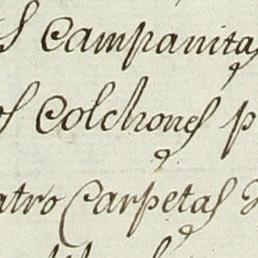 s Campanitas
os Colchones p
atro Carpetas